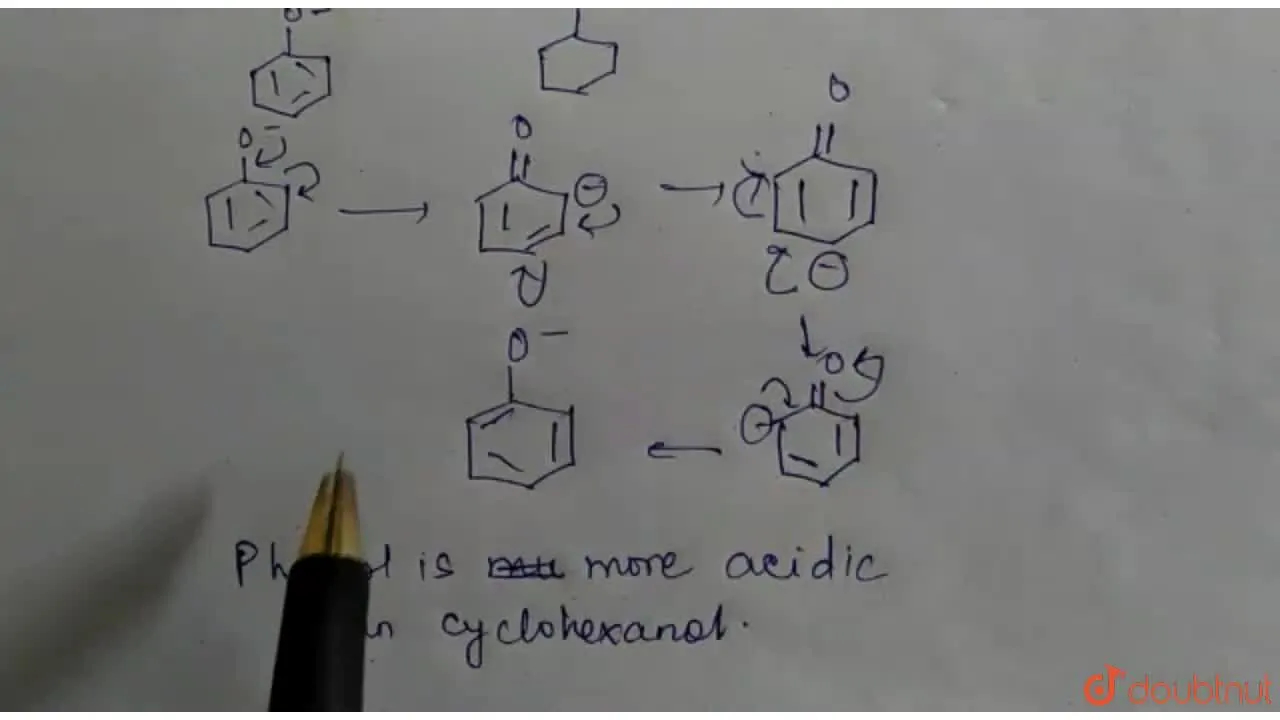 O−
O−
O
⊖
O
⊖
O−
O
⊖
is more acidic
cyclohexanol.
doubtnut